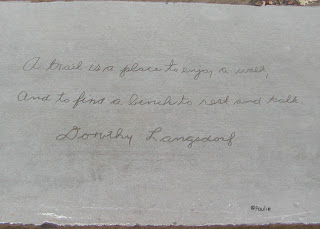 A trail is a place to enjoy a walk,
And to find a bench to rest and talk
Dorothy Langsdorf